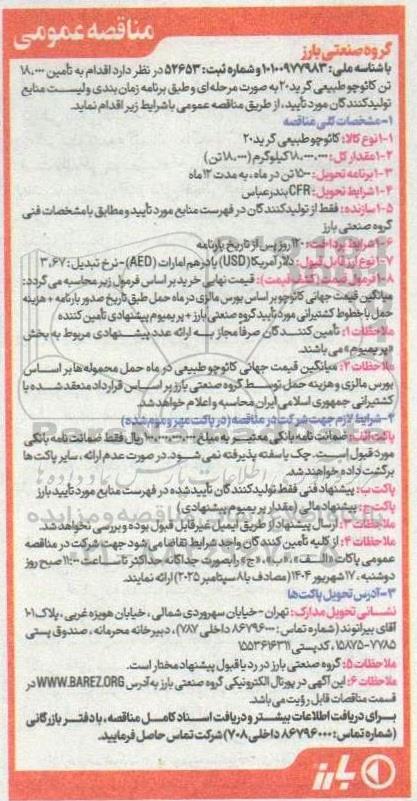 مناقصه عمومی
گروه صنعتی بارز
با شناسه ملی: ۱۰۱۰۰۹۷۷۹۸۳ و شماره ثبت: ۵۲۶۵۳ در نظر دارد اقدام به تأمین ۱۸,۰۰۰
تن کائوچو طبیعی گرید۲۰ به صورت مرحله ای و طبق برنامه زمان بندی و لیست منابع
تولیدکنندگان مورد تأیید، از طریق مناقصه عمومی با شرایط زیر اقدام نماید.
۱- مشخصات کلی مناقصه
۱-۱ نوع کالا: کائوچو طبیعی گرید۲۰
۱-۲ مقدار کل: ۱۸,۰۰۰,۰۰۰ کیلوگرم (۱۸,۰۰۰ تن)
۱-۳ برنامه تحویل: ۱۵۰۰ تن در ماه، به مدت ۱۲ ماه
۱-۴ شرایط تحویل: CFR بندرعباس
۱-۵ سازنده: فقط از تولیدکنندگان در فهرست منابع مورد تأیید و مطابق با مشخصات فنی
گروه صنعتی بارز
۱-۶ شرایط پرداخت: ۱۲۰ روز پس از تاریخ بارنامه
۱-۷ نوع ارز قابل قبول: دلار آمریکا (USD) یا درهم امارات (AED) - نرخ تبدیل: ۳.۶۷
۱-۸ فرمول قیمت (کشف قیمت): قیمت نهایی خرید بر اساس فرمول زیر محاسبه می گردد:
میانگین قیمت جهانی کائوچو بر اساس بورس مالزی در ماه حمل طبق تاریخ صدور بارنامه + هزینه
حمل با خطوط کشتیرانی مورد تأیید گروه صنعتی بارز + پریمیوم پیشنهادی تأمین کننده
ملاحظات ۱: تأمین کنندگان صرفا مجاز به ارائه عدد پیشنهادی مربوط به بخش
«پریمیوم» می باشند.
ملاحظات ۲: میانگین قیمت جهانی کائوچو طبیعی در ماه حمل محموله ها بر اساس
بورس مالزی و هزینه حمل توسط گروه صنعتی بارز بر اساس قرارداد منعقد شده با
کشتیرانی جمهوری اسلامی ایران محاسبه و اعلام خواهد شد.
۲- شرایط لازم جهت شرکت در مناقصه (در پاکت مهر و موم شده)
پاکت الف: ضمانت نامه بانکی معتبر به مبلغ ریال فقط ضمانت نامه بانکی
مورد قبول است. چک یا سفته پذیرفته نمی شود. در صورت عدم ارائه، سایر پاکت ها
برگشت داده خواهند شد.
پاکت ب: پیشنهاد فنی فقط تولیدکنندگان تأییدشده در فهرست منابع مورد تأیید بارز
پاکت ج: پیشنهاد مالی (مقدار پریمیوم پیشنهادی)
ملاحظات ۳: ارسال پیشنهاد از طریق ایمیل غیرقابل قبول بوده و بررسی نخواهد شد.
ملاحظات ۴: از کلیه تأمین کنندگان واجد شرایط تقاضا می شود جهت شرکت در مناقصه
عمومی پاکات «الف»، «ب»، «ج» را بصورت جداگانه حداکثر تا ساعت ۱۱:۰۰ صبح روز
دوشنبه، ۱۷ شهریور ۱۴۰۴ (مصادف با ۸ سپتامبر ۲۰۲۵) ارائه نمایند.
۳- آدرس تحویل پاکت ها
نشانی تحویل مدارک: تهران - خیابان سهروردی شمالی، خیابان هویزه غربی، پلاک ۱۰۱
آقای بیرانوند (شماره تماس: ۸۶۷۹۶۰۰۰ داخلی ۷۸۷)، دبیرخانه محرمانه، صندوق پستی
۱۵۸۷۵-۷۷۸۵، کدپستی ۱۵۵۳۶۱۶۳۱۱
ملاحظات ۵: گروه صنعتی بارز در رد یا قبول پیشنهاد مختار است.
ملاحظات ۶: این آگهی در پورتال الکترونیکی گروه صنعتی بارز به آدرس WWW.BAREZ.ORG در
قسمت مناقصات قابل رؤیت می باشد.
برای دریافت اطلاعات بیشتر و دریافت اسناد کامل مناقصه، با دفتر بازرگانی
(شماره تماس: ۸۶۷۹۶۰۰۰ داخلی ۷۰۸) شرکت تماس حاصل فرمایید.
بارز